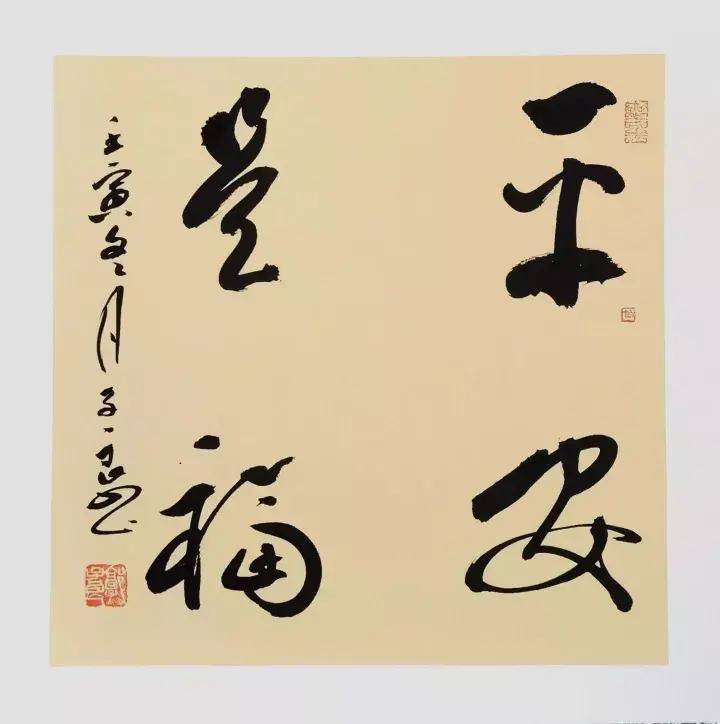 平安
是福
壬寅冬月子良